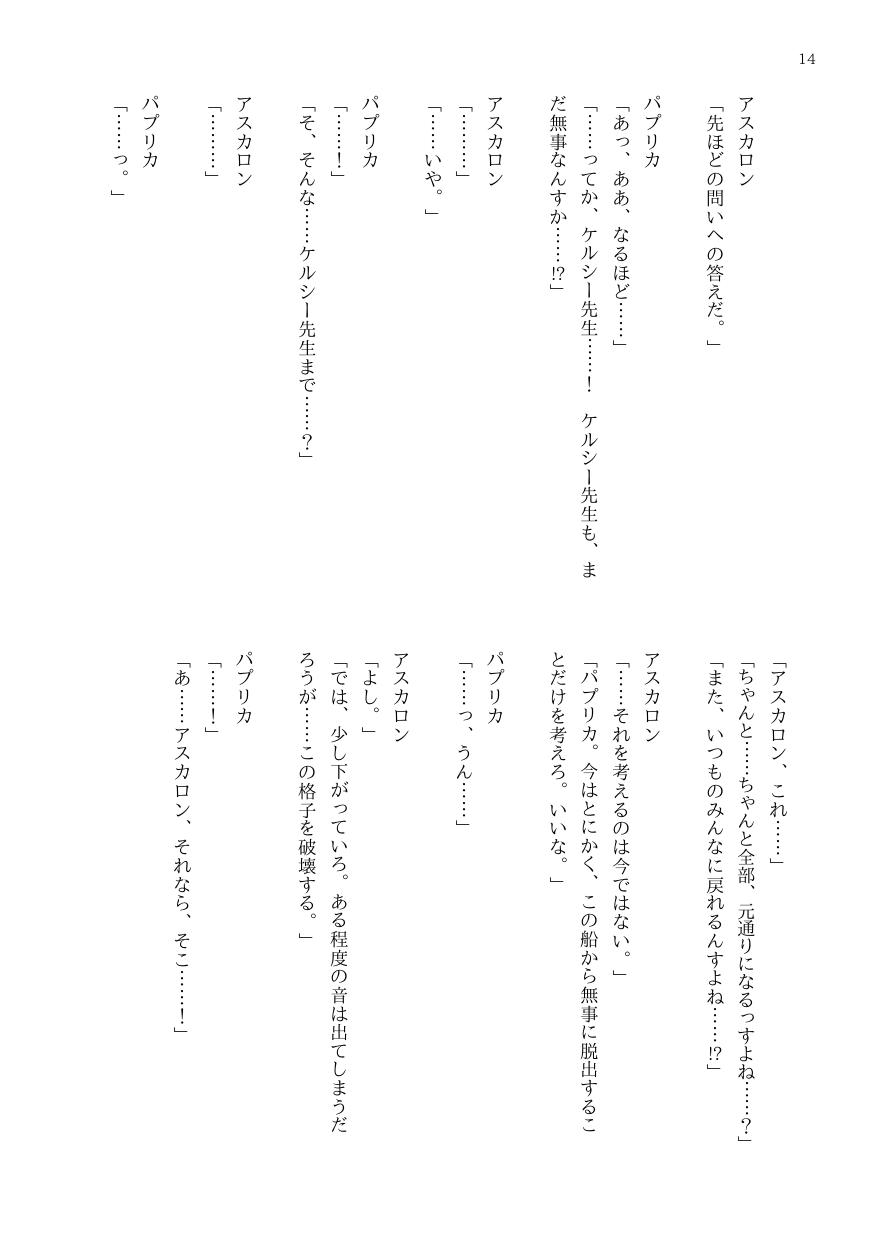 14
アスカロン
「先ほどの問いへの答えだ。」
パプリカ
「あっ、ああ、なるほど……」
「……ってか、ケルシー先生……！　ケルシー先生も、ま
だ無事なんすか……!?」
アスカロン
「………」
「……いや。」
パプリカ
「……！」
「そ、そんな……ケルシー先生まで……？」
アスカロン
「………」
パプリカ
「……っ。」
「アスカロン、これ……」
「ちゃんと……ちゃんと全部、元通りになるっすよね……？」
「また、いつものみんなに戻れるんすよね……!?」
アスカロン
「……それを考えるのは今ではない。」
「パプリカ。今はとにかく、この船から無事に脱出するこ
とだけを考えろ。いいな。」
パプリカ
「……っ、うん……」
アスカロン
「よし。」
「では、少し下がっていろ。ある程度の音は出てしまうだ
ろうが……この格子を破壊する。」
パプリカ
「……！」
「あ……アスカロン、それなら、そこ……！」